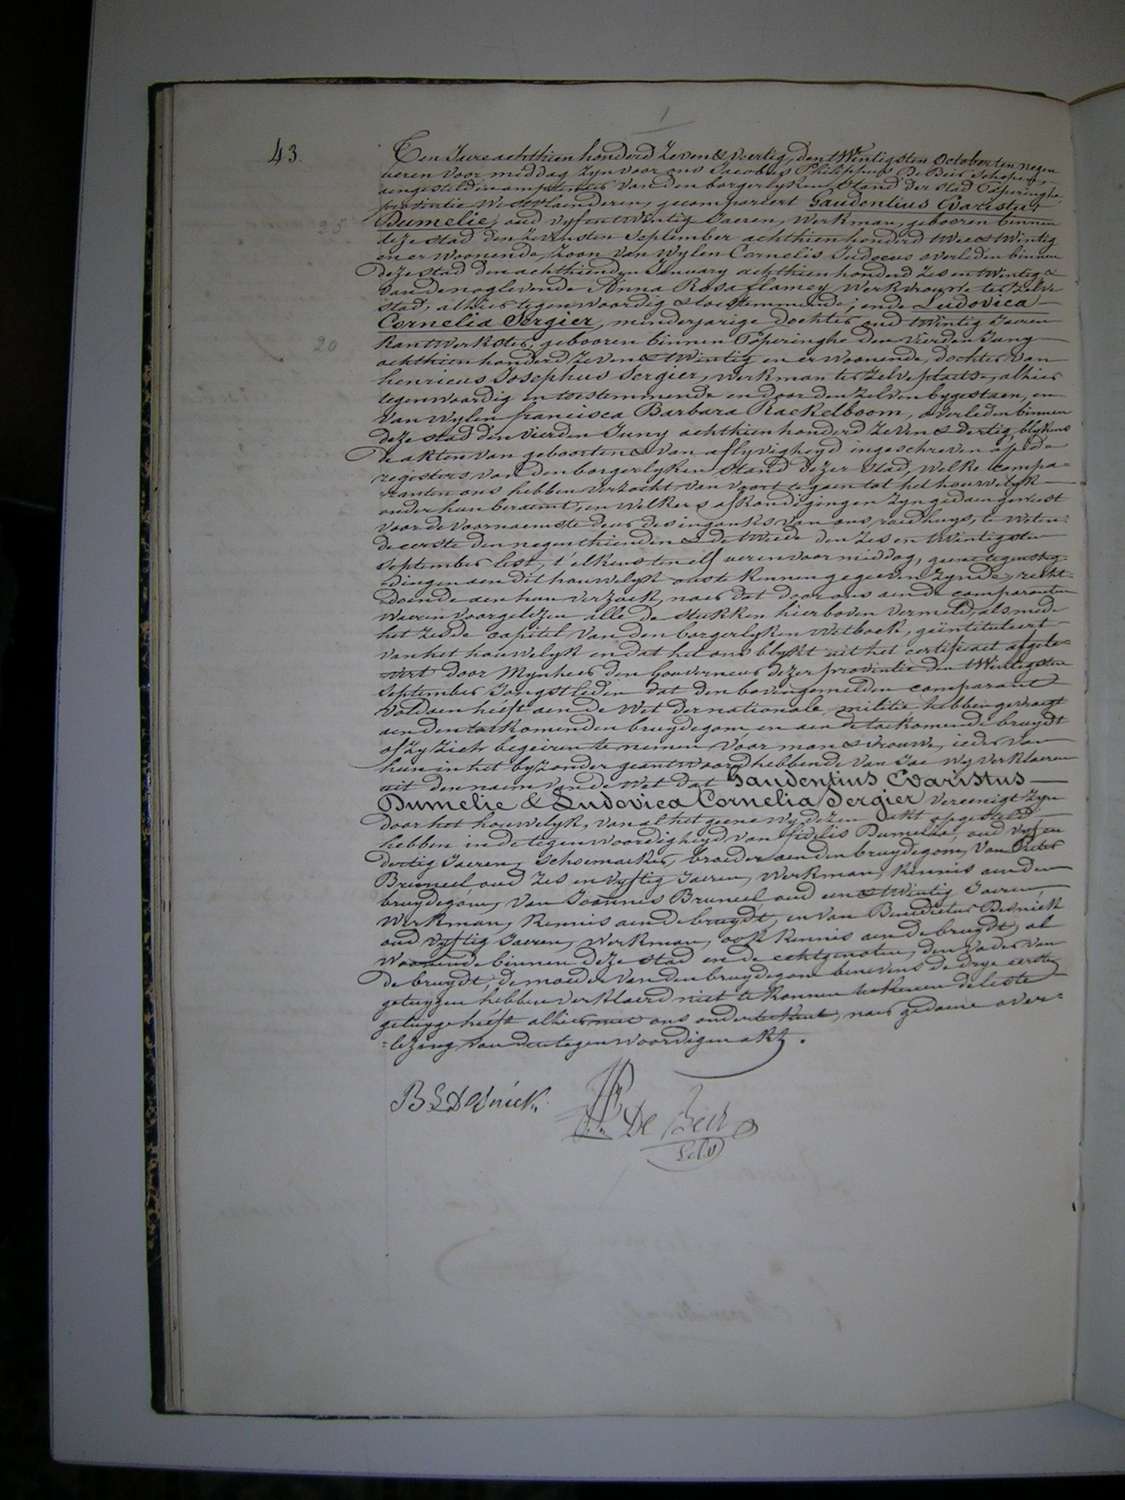 43
Ten Jaere achthien honderd Zeven & veertig, den twintigsten October ten negen
ueren voor middag zyn voor ons Jacobus Philippus De Beir Schepen,
aengesteldin ampteneer van den borgerlyken Stand der Stad Poperinghe
provintie Westvlaenderen, gecompareert Gaudentius Evaristus
25 Dumelie, oud vyf en twintig Jaeren, werkman, gebooren binnen
deze stad den Zevensten September achthien honderd twee & twintig
en er woonende, Zoon van wylen Cornelis Judocus overleden binnen
deze stad den achthienden January achthien honderd Zes en twintig &
van de noglevende Anna Rosa flamey, werkvrouwe ter zelve
stad, alhier tegenwoordig & toestemmende; ende Ludovica
Cornelia Sergier, minderjarige dochter, oud twintig Jaeren
20 kantwerkster, gebooren binnen Poperinghe den vierden
achthien honderd Zeven & twintig en er woonende, dochter van
henricus Josephus Sergier, werkman ter zelve plaetse, alhier
tegenwoordig en toestemmende en door den zelven bygestaen, en
van wylen francisca Barbara Kackelboom, overleden binnen
deze stad den vierden Juny achthien honderd Zeven & dertig, blykens
de akten van geboorten & van aflyvigheyd ingeschreven op de
registers van den borgerlyken Stand dezer stad, welke compa-
ranten ons hebben verzocht van voort te gaen tot het houwelyk
onder hun beraemt, en welkers afkondigingen zyn gedaen geweest
voor de voornaemste deur des ingancks van ons raedhuys, te weten:
de eerste den negenthienden & de tweede den Zes en twintigsten
September lest, t'elkens ten elf ueren voor middag, geene tegenstry-
dingen aen dit houwelyk ons te kennen gegeeven zynde, recht-
doende aen hun verzoek, naer dat door ons aen de comparanten
waeren voorgelezen alle de stukken hierboven vermeld, als mede
het zesde capittel van den borgerlyken Wetboek, geïntituleert
van het houwelyk en dat het ons blykt uit het certificaet afgele-
vert door Mynheer den Gouverneur dezer provintie den twintigsten
September Jongstleden dat den bovengemelden comparant
voldaen heeft aen de wet der nationale militie hebben gevraegt
aen den toekomenden bruydegom en aen de toekomende bruydt
of zy zich begeiren te nemen voor man & vrouwe, ieder van
hun in het byzonder geantwoord hebbende van Jae wy verklaeren
uit den naem van de wet dat Gaudentius Evaristus
Dumelie & Ludovica Cornelia Sergier vereenigt zyn
door het houwelyk, van al het geene wy dezen akt opgesteld
hebben in de tegenwoordigheyd van fidelis Dumelie, oud vyf en
dertig Jaeren, Schoemaker, broeder aen den bruydegom, van Pieter
Bruneel oud Zes en vyftig Jaeren, werkman, kennis aen den
bruydegom, van Joannes Bruneel, oud een & twintig Jaeren,
werkman, kennis aen de bruydt, en van Benedictus Desnick
oud vyftig Jaeren, werkman, ook kennis aen de bruydt, al
woonende binnen deze stad en de echtgenoten, den vader van
de bruydt, de moeder van den bruydegom benevens de drye eerste
getuygen hebben verklaerd niet te konnen teekenen de leste
getuyge heeft alhier met ons onderteekent, naer gedaene over-
lezing van den tegenwoordigen akt.
B L Desnick
De Beir